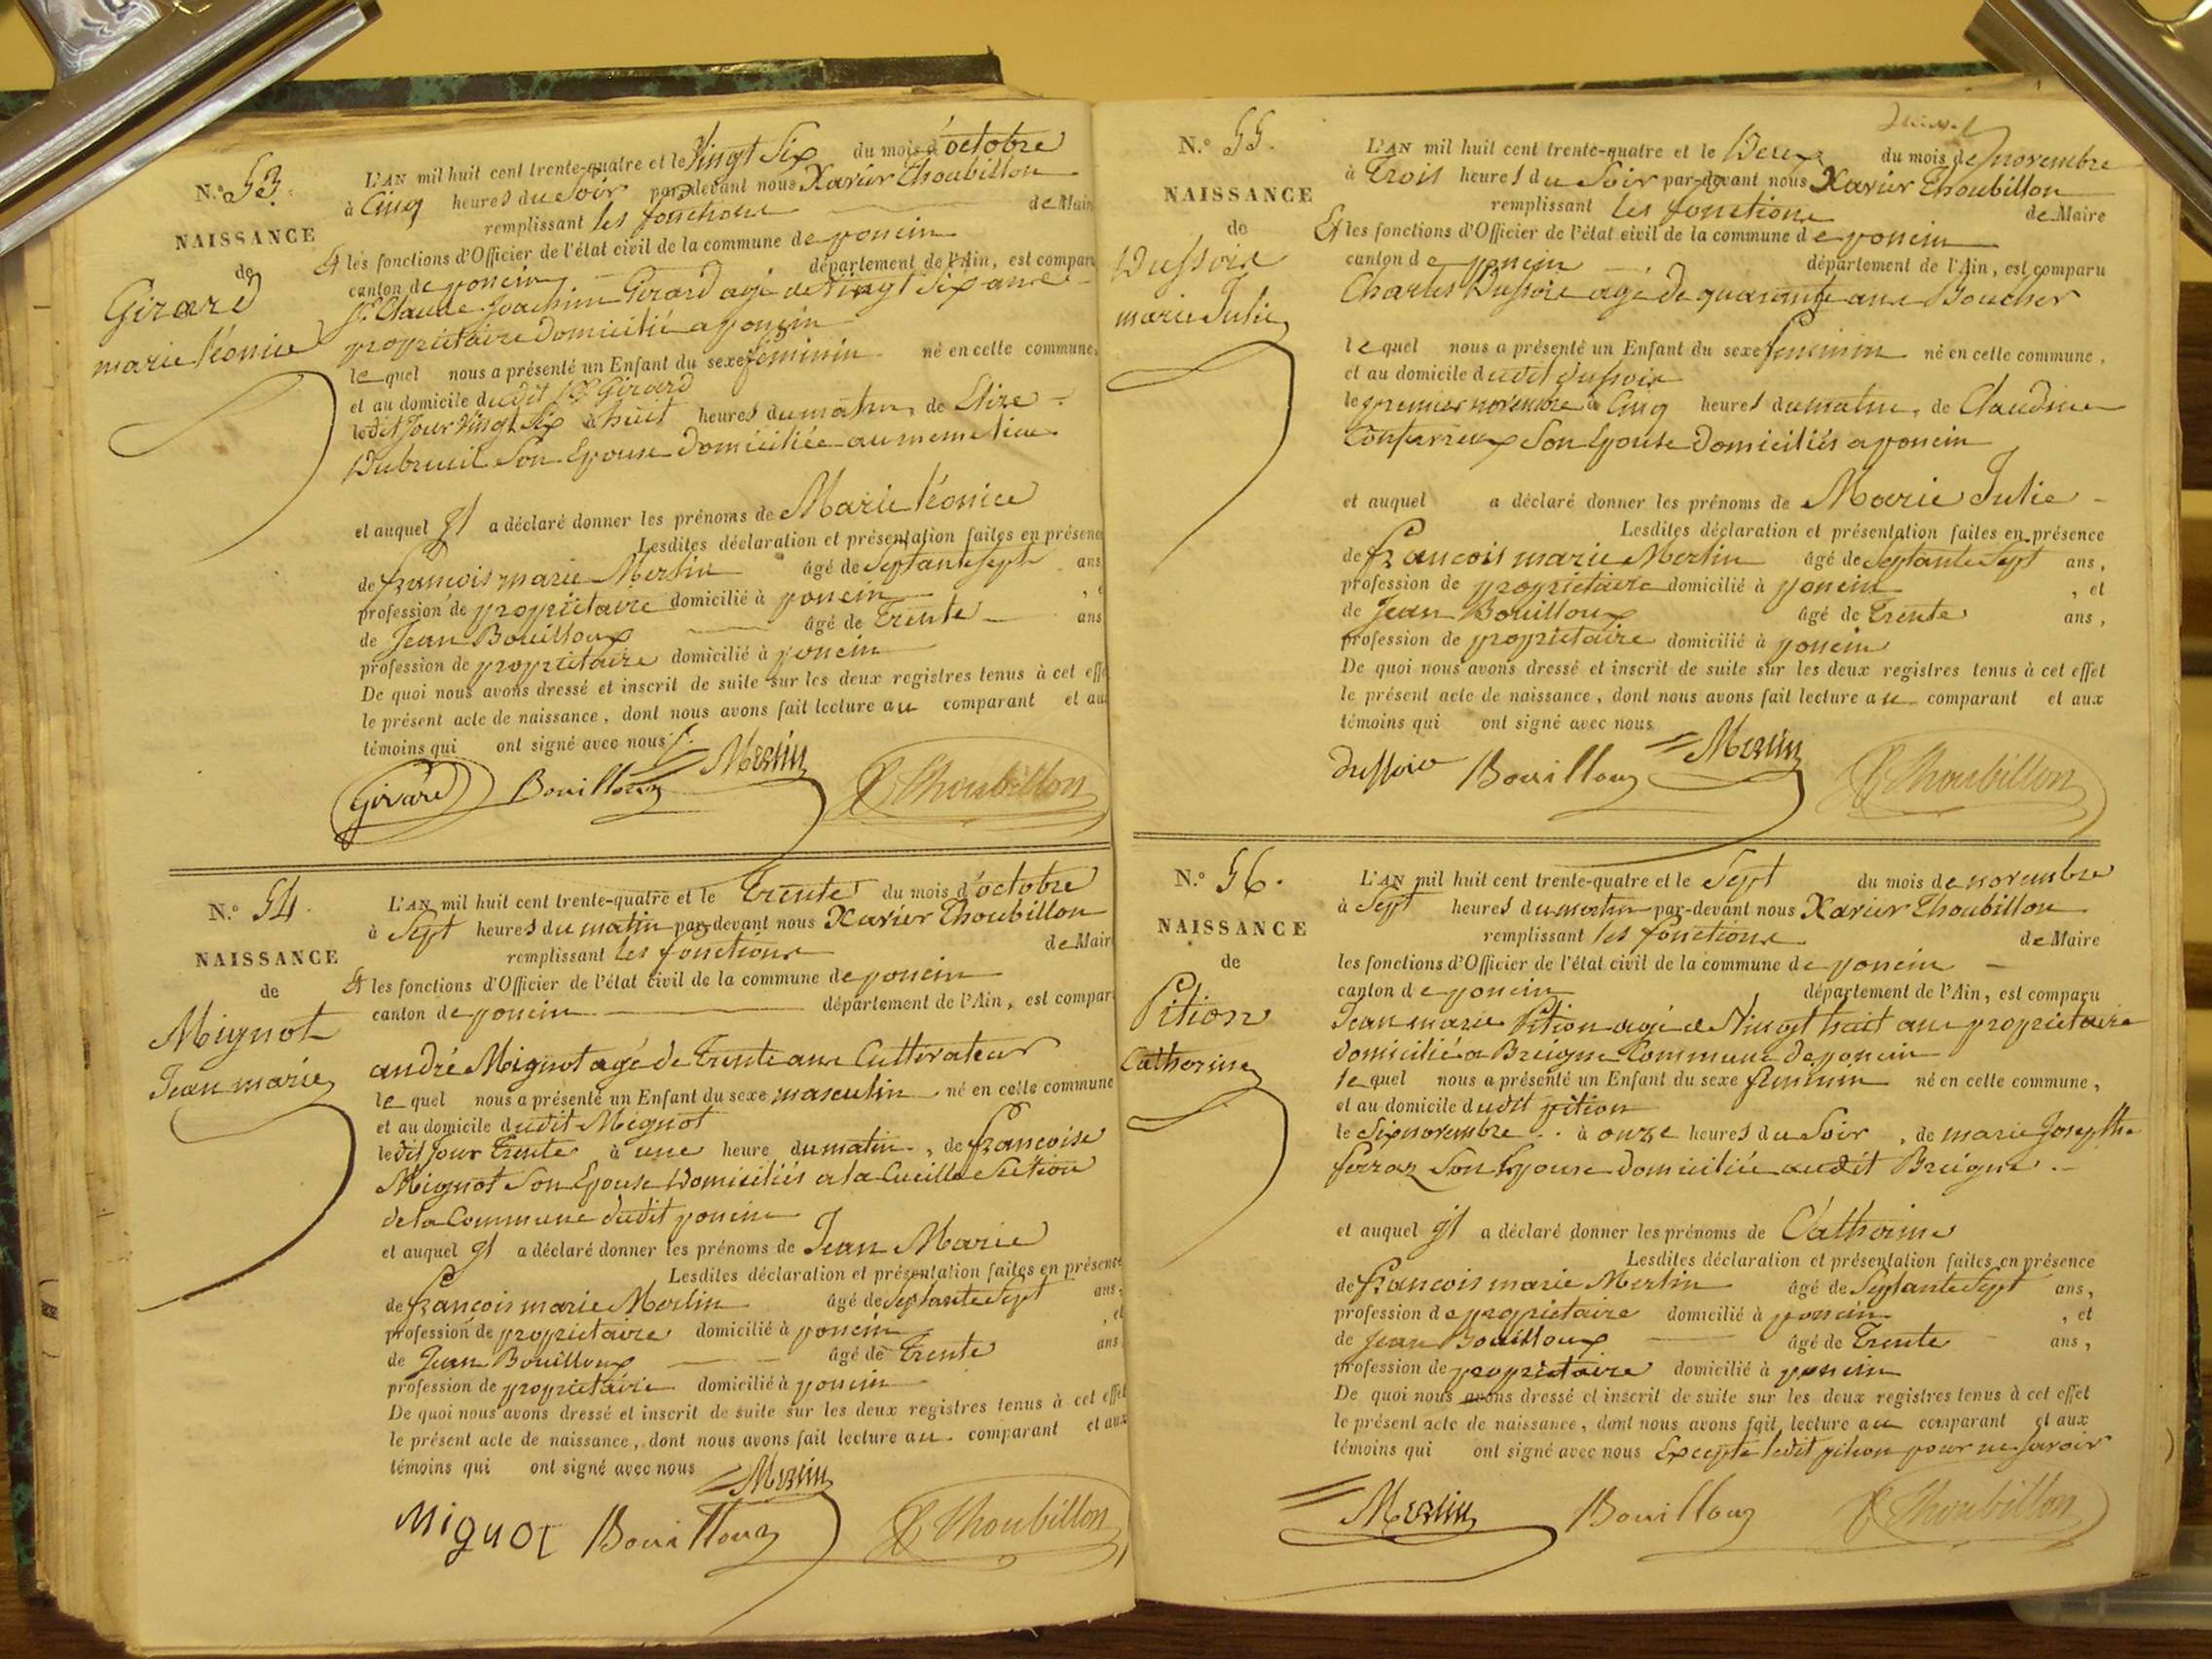 N.º 53.
NAISSANCE
de
Girard
marie léonice
L'AN mil huit cent trente-quatre et le Vingt Six du mois d'octobre
à Cinq heures du Soir par-devant nous Xavier Thoubillon
remplissant les fonctions de Mair
Et les fonctions d'Officier de l'état civil de la commune de poncin
canton de poncin département de l'Ain, est compar
Sr. Claude Joachim Girard agé de vingt Six ans
propriétaire Domicilié a poncin
le quel nous a présenté un Enfant du sexe féminin né en cette commune,
et au domicile dudit Sr. Girard
ledit Jour Vingt Six à huit heures du matin, de Elize
Dubreuil Son Epouse Domiciliée au meme lieu
et auquel Il a déclaré donner les prénoms de Marie léonice
Lesdites déclaration et présentation faites en présence
de françois marie Merlin âgé de Septante Sept ans
profession de propriétaire domicilié à poncin, e
de Jean Bouilloux âgé de Trente ans
profession de propriétaire domicilié à poncin
De quoi nous avons dressé et inscrit de suite sur les deux registres tenus à cet effe
le présent acte de naissance, dont nous avons fait lecture au comparant et au
témoins qui ont signé avec nous
Girard Bouilloux Merlin X Thoubillon
N.º 54.
NAISSANCE
de
Mignot
Jean marie
L'AN mil huit cent trente-quatre et le Trente du mois d'octobre
à Sept heures du matin par-devant nous Xavier Thoubillon
remplissant les fonctions de Mair
Et les fonctions d'Officier de l'état civil de la commune de poncin
canton de poncin département de l'Ain, est compar
andré Mignot agé de Trente ans Cultivateur
le quel nous a présenté un Enfant du sexe masculin né en cette commune
et au domicile dudit Mignot
ledit Jour Trente à une heure du matin, de françoise
Mignot Son Epouse Domiciliés a la Cueille Section
de la Commune dudit poncin
et auquel Il a déclaré donner les prénoms de Jean Marie
Lesdites déclaration et présentation faites en présence
de françois marie Merlin âgé de Septante Sept ans,
profession de propriétaire domicilié à poncin, et
de Jean Bouilloux âgé de Trente ans
profession de propriétaire domicilié à poncin
De quoi nous avons dressé et inscrit de suite sur les deux registres tenus à cet effet
le présent acte de naissance, dont nous avons fait lecture au comparant et aux
témoins qui ont signé avec nous
Mignot Bouilloux Merlin X Thoubillon
N.º 55.
NAISSANCE
de
Dussoix
marie Julie
L'AN mil huit cent trente-quatre et le Deux du mois de novembre
à Trois heures du Soir par-devant nous Xavier Thoubillon
remplissant les fonctions de Maire
Et les fonctions d'Officier de l'état civil de la commune de poncin
canton de poncin département de l'Ain, est comparu
Charles Dussoix agé de quarante ans Boucher
le quel nous a présenté un Enfant du sexe feminin né en cette commune,
et au domicile dudit dussoix
le premier novembre à Cinq heures du matin, de Claudine
Son Epouse Domiciliés a poncin
et auquel a déclaré donner les prénoms de Marie Julie
Lesdites déclaration et présentation faites en présence
de françois marie Merlin âgé de Septante Sept ans,
profession de propriétaire domicilié à poncin, et
de Jean Bouilloux âgé de Trente ans,
profession de propriétaire domicilié à poncin
De quoi nous avons dressé et inscrit de suite sur les deux registres tenus à cet effet
le présent acte de naissance, dont nous avons fait lecture au comparant et aux
témoins qui ont signé avec nous
dussoix Bouilloux Merlin X Thoubillon
N.º 56.
NAISSANCE
de
Pition
Catherine
L'AN mil huit cent trente-quatre et le Sept du mois de novembre
à Sept heures du matin par-devant nous Xavier Thoubillon
remplissant les fonctions de Maire
les fonctions d'Officier de l'état civil de la commune de poncin
canton de poncin département de l'Ain, est comparu
Jean marie Pition agé de Vingt huit ans propriétaire
domicilié a Breigne Commune de poncin
le quel nous a présenté un Enfant du sexe feminin né en cette commune,
et au domicile dudit pition
le Six novembre à onze heures du Soir, de marie Josephte
ferraz Son Epouse domiciliée audit Breigne.
et auquel Il a déclaré donner les prénoms de Catherine
Lesdites déclaration et présentation faites en présence
de françois marie Merlin âgé de Septante Sept ans,
profession de propriétaire domicilié à poncin, et
de Jean Bouilloux âgé de Trente ans,
profession de propriétaire domicilié à poncin
De quoi nous avons dressé et inscrit de suite sur les deux registres tenus à cet effet
le présent acte de naissance, dont nous avons fait lecture au comparant et aux
témoins qui ont signé avec nous Excepte ledit pition pour ne Savoir
Merlin Bouilloux X Thoubillon